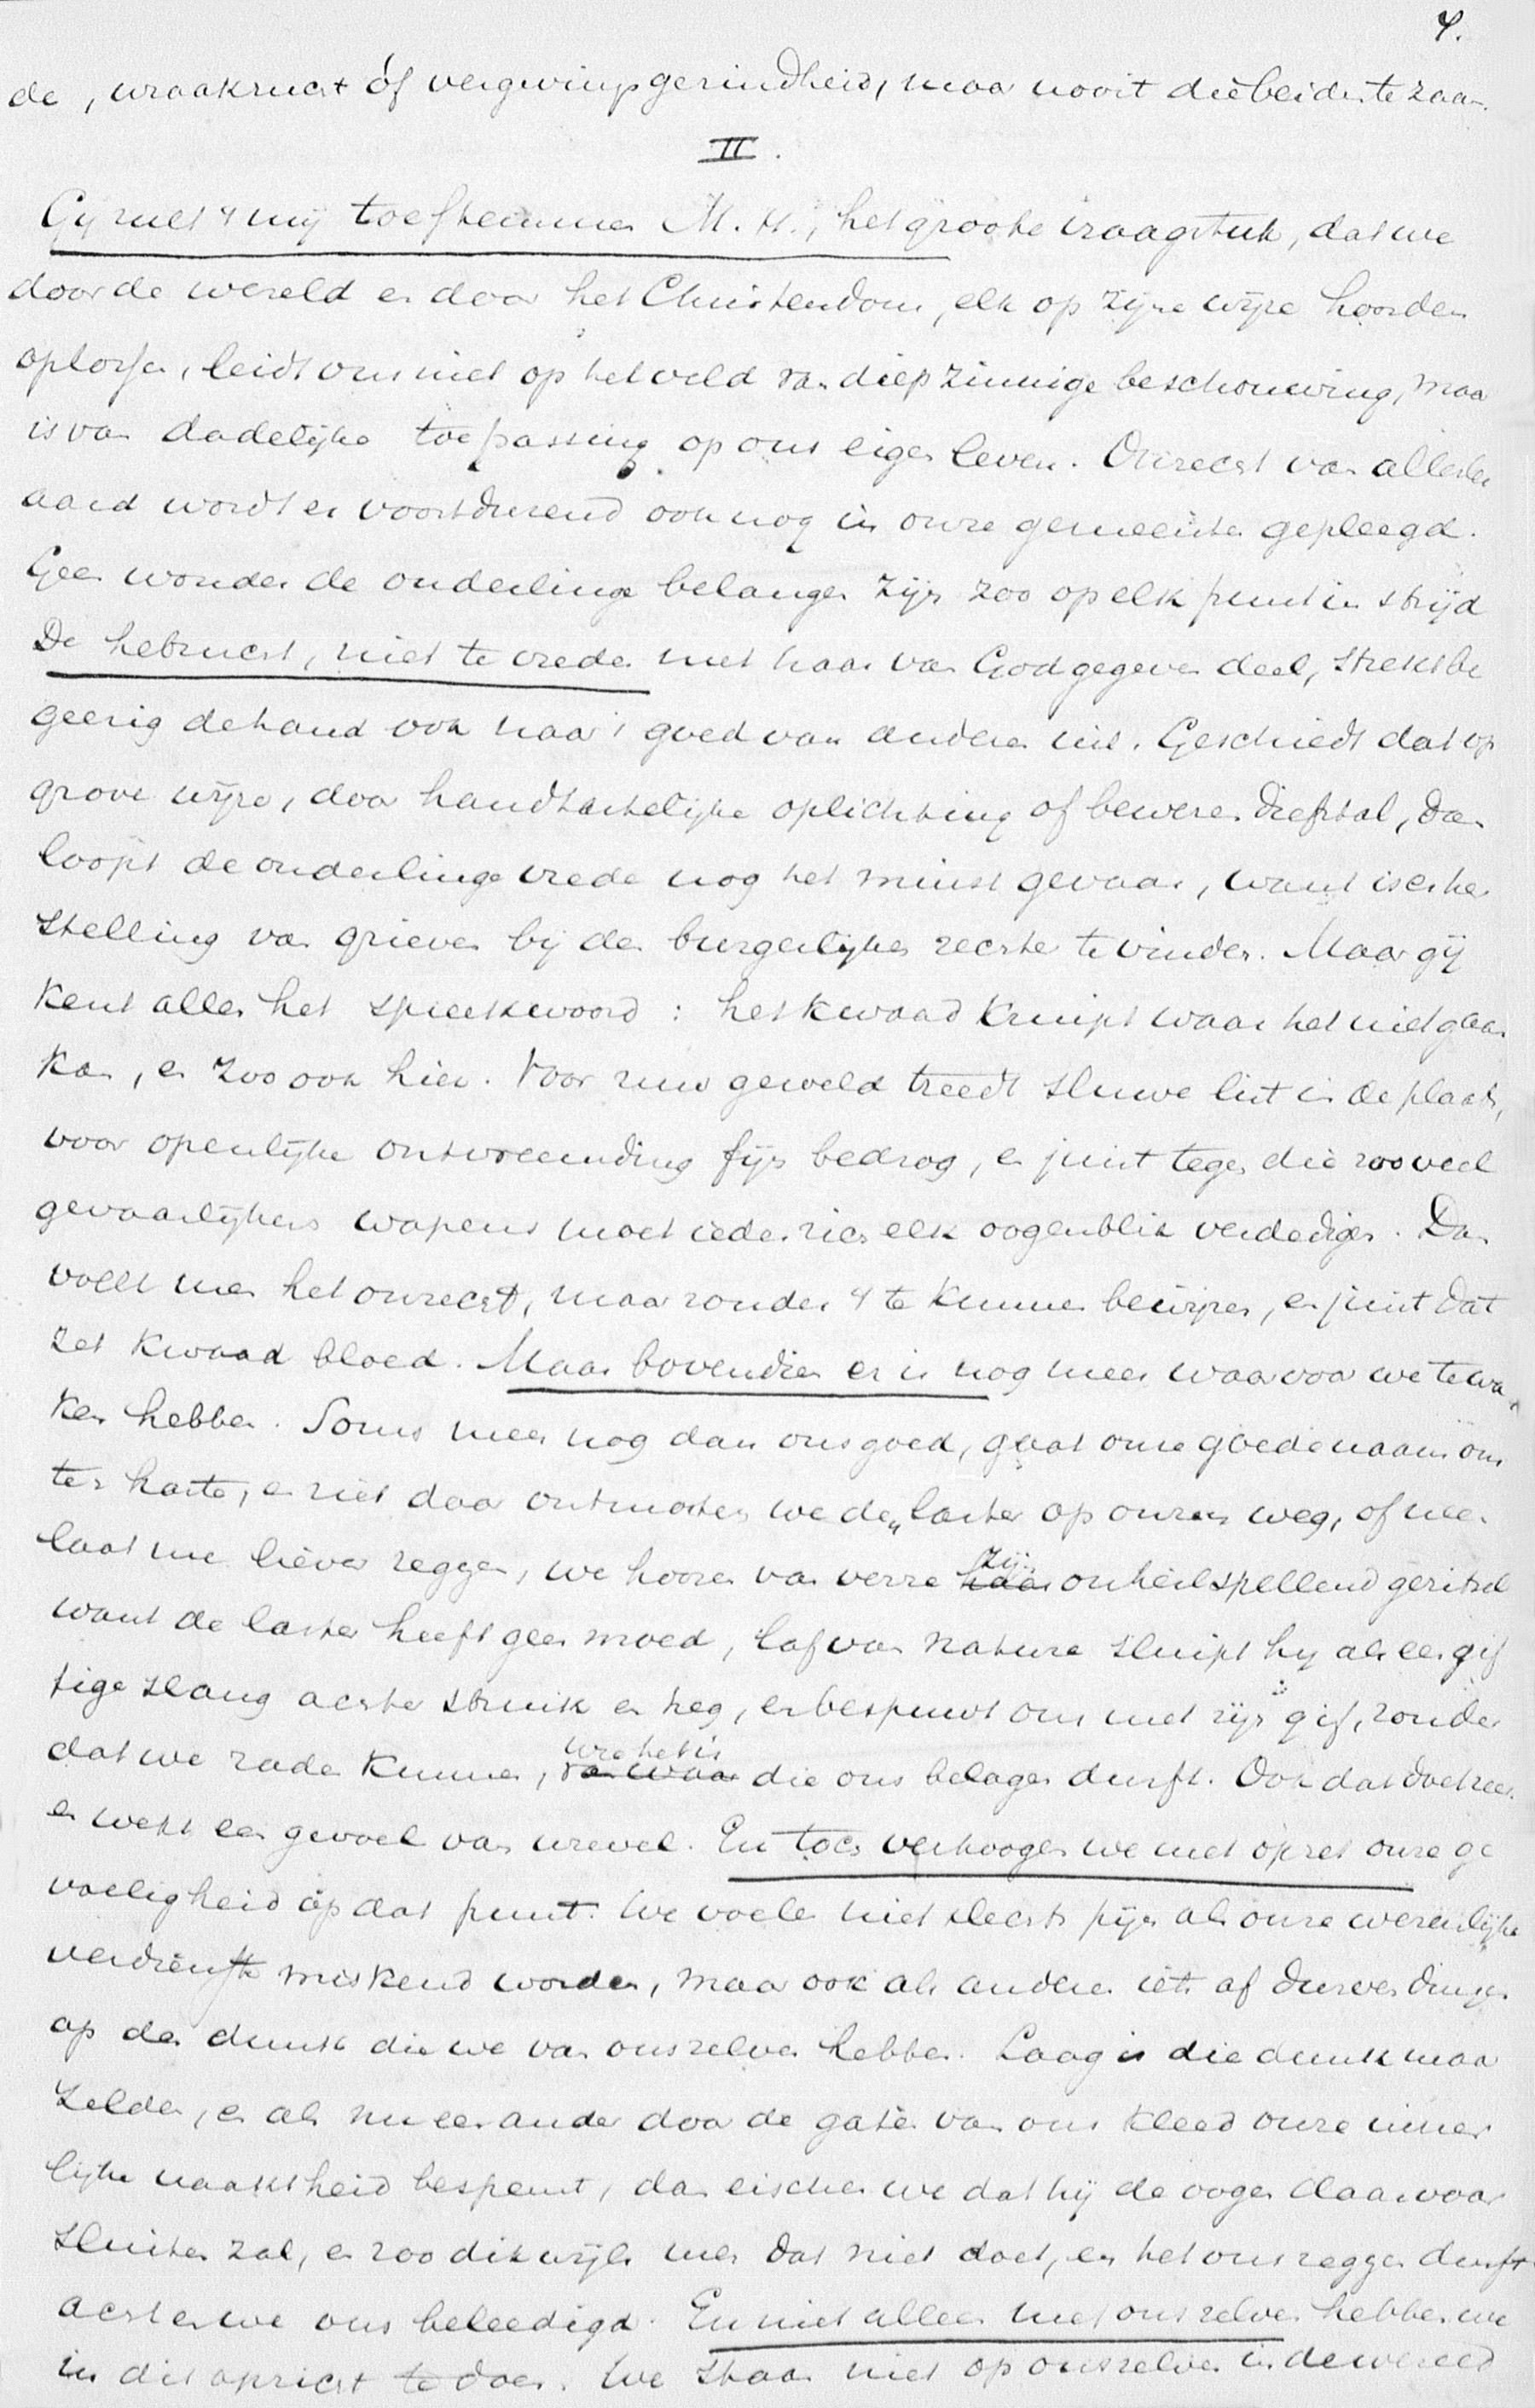 4.
de, wraakzucht óf vergevingsgezindheid, maar nooit die beiden te zaam.
II.
Gij zult 't mij toestemmen M. H., het groote vraagstuk, dat we
door de wereld en door het Christendom, elk op zijne wijze hoorden
oplossen, leidt ons niet op het veld van diepzinnige beschouwing, maar
is van dadelijke toepassing op ons eigen leven. Onrecht van allerlei
aard wordt er voortdurend ook nog in onze gemeente gepleegd.
Geen wonder de onderlinge belangen zijn zoo op elk punt in strijd
De hebzucht, niet te vreden met haar van God gegeven deel, strekt be
geerig de hand ook naar 't goed van anderen uit. Geschiedt dat op
grove wijze, door handtastelijke oplichting of bewezen diefstal, dan
loopt de onderlinge vrede nog het minst gevaar, want is er her
stelling van grieven bij den burgerlijken rechter te vinden. Maar gij
kent allen het spreekwoord: het kwaad kruipt waar het niet gaan
kan, en zoo ook hier. Voor ruw geweld treedt sluwe list in de plaats,
voor openlijke ontvreemding fijn bedrog, en juist tegen die zooveel
gevaarlijkers wapens moet ieder zich elk oogenblik verdedigen. Dan
voelt men het onrecht, maar zonder 't te kunnen bewijzen, en juist dat
zet kwaad bloed. Maar bovendien er is nog meer waarvoor we te wa
ken hebben. Soms meer nog dan ons goed, gaat onze goede naam ons
ter harte, en ziet daar ontmoeten we den laster op onzen weg, of neen
laat me liever zeggen, we hooren van verre zijn onheilspellend geritsel
want de laster heeft geen moed, laf van nature sluipt hij als een gif
tige slang achter struik en heg, en bespuwt ons met zijn gif, zonder
dat we raden kunnen, wie het is die ons belagen durft. Ook dat doet zeer
en wekt een gevoel van wrevel. En toch verhoogen we met opzet onze ge
voeligheid op dat punt. We voelen niet slechts pijn als onze wezenlijke
verdiensten miskend worden, maar ook als anderen iets af durven dingen
op den dunk die we van onszelven hebben. Laag is die dunk maar
zelden, en als nu een ander door de gaten van ons kleed onze inner
lijke naaktheid bespeurt, dan eischen we dat hij de oogen daarvoor
sluiten zal, en zoo dikwijls men dat niet doet, en het ons zeggen durft
achten we ons beleedigd. En niet alleen met ons zelven hebben we
in dit opzicht te doen. We staan niet op onszelven in de wereld